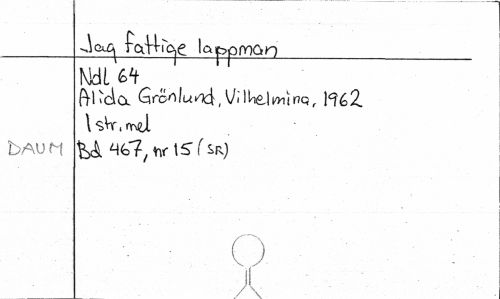 Jag fattige lappman
Ndl 64
Alida Grönlund, Vilhelmina, 1962
1 str. mel
DAUM Bd 467, nr 15 (SR)